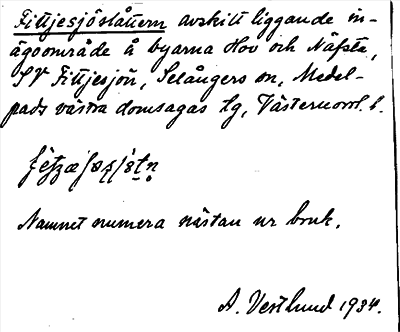 Fittjesjöslåttern avskilt liggande in-
ägoområde å byarna Hov och Näfsta,
SV Fittjesjön, Selångers sn, Medel-
pads västra domsagas tg, Västernorrl. l.
Namnet numera nästan ur bruk.
A. Vestlund 1934.